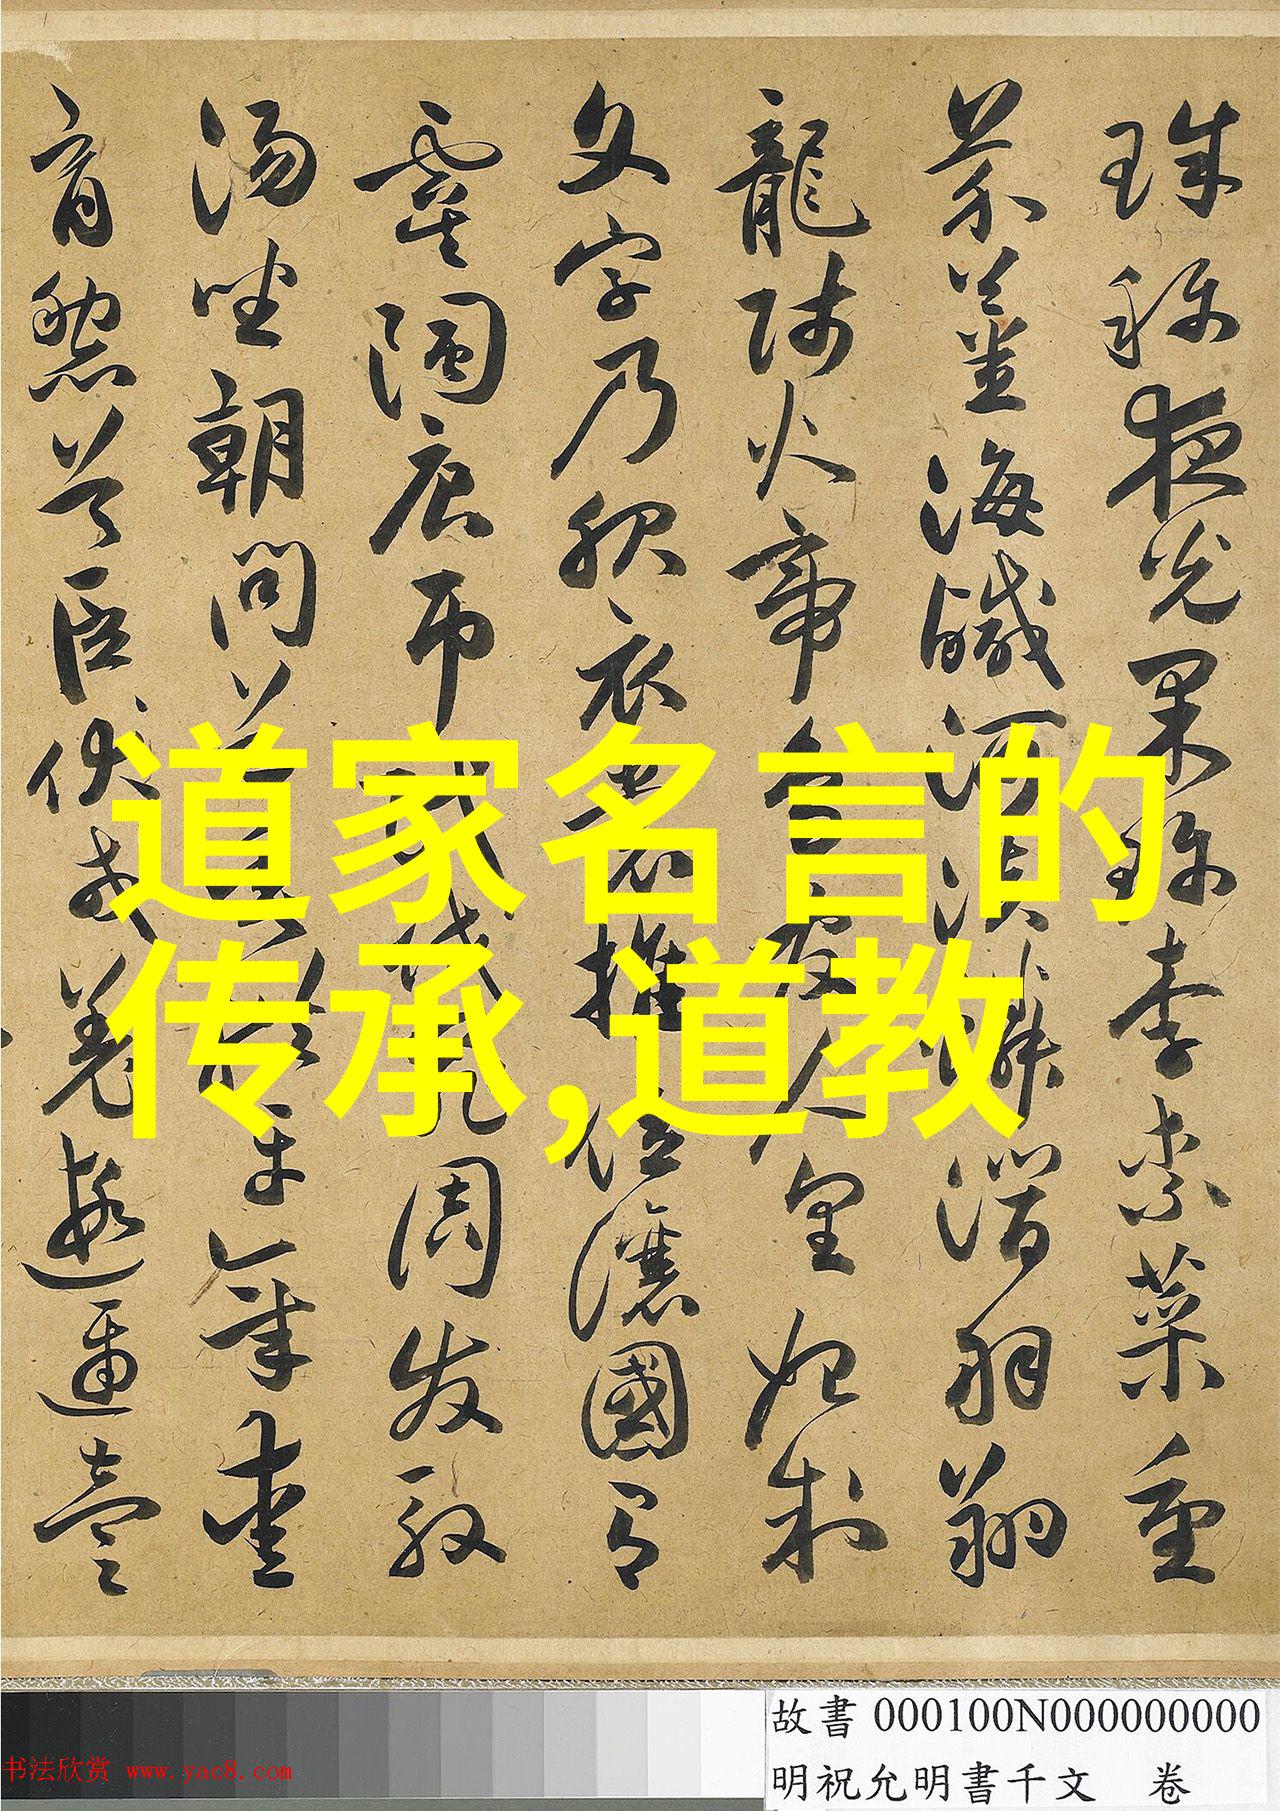 珠称夜光果珎李柰菜重
芥薑海鹹河淡鱗潛羽翔
龍師火帝鳥官人皇始制
文字乃服衣裳推位讓國有
虞陶唐弔民伐罪周發殷
湯坐朝問道垂拱平章愛
育黎首臣伏戎羌遐邇壹
道家名言的
传承,道教
故書 000100N000000000
明祝允明書千文 卷
书法欣赏 www.yac8.com